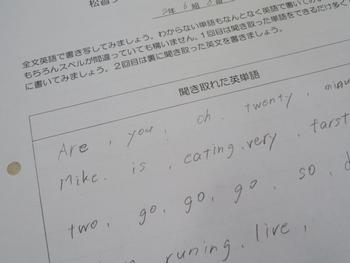 2年 6組
全文英語で書き写してみましょう。わからない単語もなんとなく英語で書いてみ
もちろんスペルが間違っていても構いません。1回目は聞き取った単語をできるだけ多く
に書いてみましょう。2回目は裏に聞き取った英文を書きましょう。
聞き取れた英単語
Are , you , ch , twenty ,
Mike . is , eating . very , farst
two , go , go , go , so ,
runing . live ,